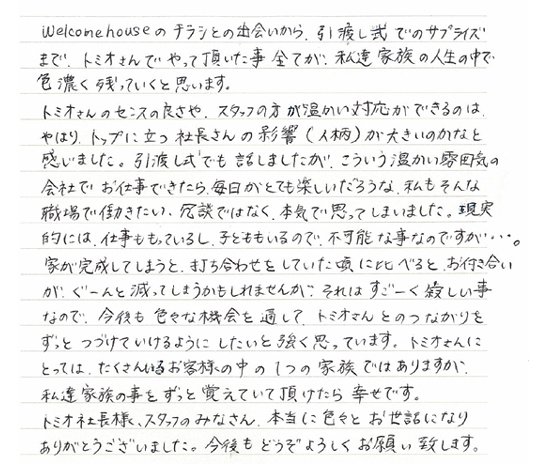 Welcomehouseのチラシとの出会いから、引渡し式でのサプライズ
まで、トミオさんでやって頂いた事全てが、私達家族の人生の中で
色濃く残っていくと思います。
トミオさんのセンスの良さや、スタッフの方が温かい対応ができるのは、
やはり、トップに立つ社長さんの影響(人柄)が大きいのかなと
感じました。引渡し式でも話しましたが、こういう温かい雰囲気の
会社でお仕事できたら、毎日がとても楽しいだろうな、私もそんな
職場で働きたい、冗談ではなく、本気で思ってしまいました。現実
的には、仕事ももっているし、子どももいるので、不可能な事なのですが・・・。
家が完成してしまうと、打ち合わせをしていた頃に比べると、お付き合い
が、ぐーんと減ってしまうかもしれませんが、それはすごーく寂しい事
なので、今後も色々な機会を通して、トミオさんとのつながりを
ずっとつづけていけるようにしたいと強く思っています。トミオさんに
とっては、たくさんいるお客様の中の1つの家族ではありますが、
私達家族の事をずっと覚えていて頂けたら幸せです。
トミオ社長様、スタッフのみなさん、本当に色々とお世話になり
ありがとうございました。今後もどうぞよろしくお願い致します。